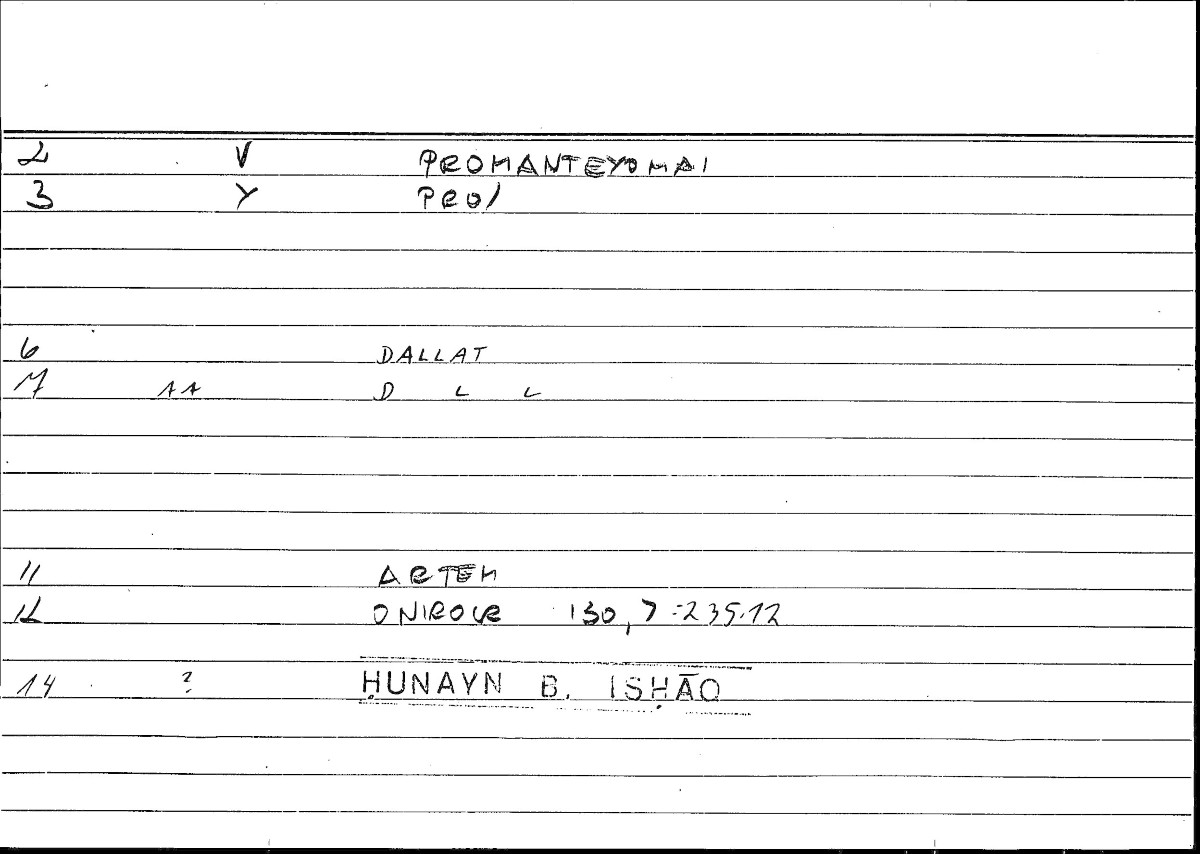 2 V PROMANTEYOMAI
3 Y PRO/
6 DALLAT
7 11 D L L
11 ARTEM
12 ONIROCR 130,7 = 235.12
14 ? ḤUNAYN B. ISḤĀQ